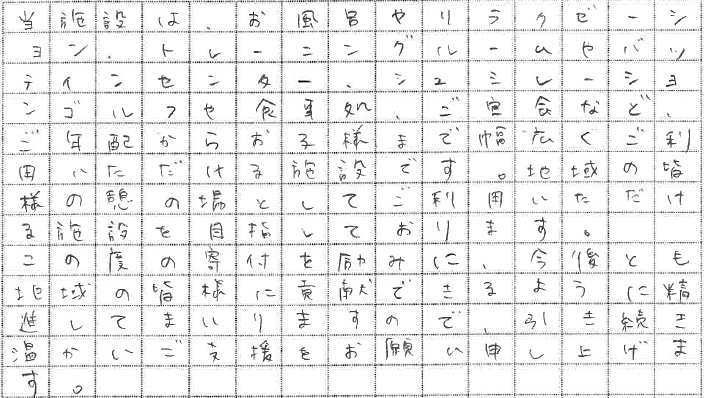 当施設は、お風呂やリラクゼーシ
ョン、トレーニングルームやバッ
ティングセンター、シュミレーショ
ンゴルフや食事処、ご宴会など、
ご年配からお子様まで幅広くご利
用いただける施設です。地域の皆
様の憩の場としてご利用いただけ
る施設を目指しております。
この度の寄付を励みに、今後とも
地域の皆様に貢献できるように精
進してまいりますので、引き続き
温かいご支援をお願い申し上げま
す。